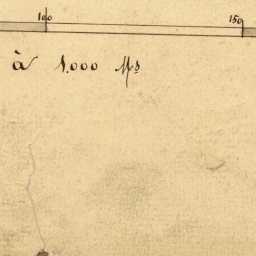 100 150
à 1.000 Ms